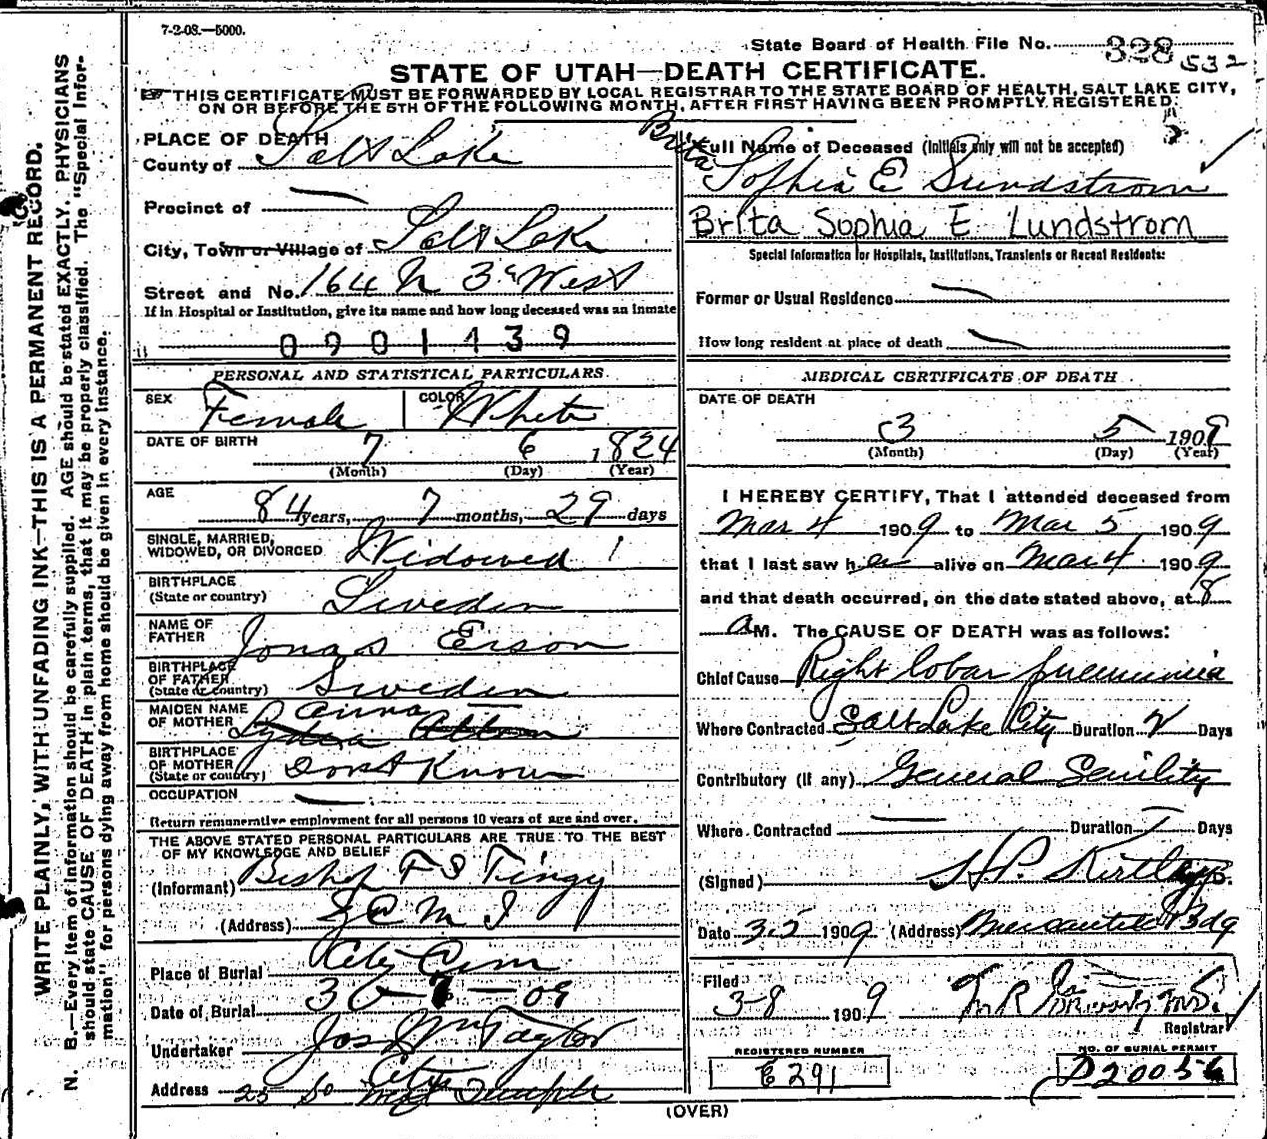 7-2-08.—5000.
State Board of Health File No. 328 532
STATE OF UTAH—DEATH CERTIFICATE.
☞ THIS CERTIFICATE MUST BE FORWARDED BY LOCAL REGISTRAR TO THE STATE BOARD OF HEALTH, SALT LAKE CITY,
ON OR BEFORE THE 5TH OF THE FOLLOWING MONTH, AFTER FIRST HAVING BEEN PROMPTLY REGISTERED.
WRITE PLAINLY, WITH UNFADING INK—THIS IS A PERMANENT RECORD.
N. B.—Every item of information should be carefully supplied. AGE should be stated EXACTLY. PHYSICIANS
should state CAUSE OF DEATH in plain terms, that it may be properly classified. The "Special Infor-
mation" for persons dying away from home should be given in every instance.
PLACE OF DEATH
County of Salt Lake
Precinct of —
City, Town or Village of Salt Lake
Street and No. 164 N 3d West
If in Hospital or Institution, give its name and how long deceased was an Inmate
0901439
PERSONAL AND STATISTICAL PARTICULARS.
SEX Female COLOR White
DATE OF BIRTH 7 6 1824
(Month) (Day) (Year)
AGE 84 years, 7 months, 29 days
SINGLE, MARRIED,
WIDOWED, OR DIVORCED Widowed
BIRTHPLACE
(State or country) Sweden
NAME OF
FATHER Jonas Erson
BIRTHPLACE
OF FATHER
(State or country) Sweden
MAIDEN NAME
OF MOTHER Anna —
BIRTHPLACE
OF MOTHER
(State or country) Dont Know
OCCUPATION —
Return remunerative employment for all persons 10 years of age and over.
THE ABOVE STATED PERSONAL PARTICULARS ARE TRUE TO THE BEST
OF MY KNOWLEDGE AND BELIEF
(Informant) Bishop F S Tingy
(Address) Z C M I
Place of Burial City Cem
Date of Burial 3 - 7 - 09
Undertaker Jos Wm Taylor
City
Address 25 So West Temple
Full Name of Deceased (Initials only will not be accepted)
Brita Sophia E Sundstrom
Brita Sophia E Lundstrom
Special Information for Hospitals, Institutions, Transients or Recent Residents:
Former or Usual Residence —
How long resident at place of death —
MEDICAL CERTIFICATE OF DEATH
DATE OF DEATH
3 5 1909
(Month) (Day) (Year)
I HEREBY CERTIFY, That I attended deceased from
Mar 4 1909 to Mar 5 1909
that I last saw her alive on Mar 4 1909
and that death occurred, on the date stated above, at 8
a M. The CAUSE OF DEATH was as follows:
Chief Cause Right lobar pneumonia
Where Contracted Salt Lake City Duration 2 Days
Contributory (if any) General Senility
Where Contracted — Duration — Days
(Signed) H.P. Kirtley M.D.
Date 3-5 1909 (Address) Mercantile Bdg
Filed
3-8 1909
Registrar
REGISTERED NUMBER
C 291
NO. OF BURIAL PERMIT
D 20056
(OVER)